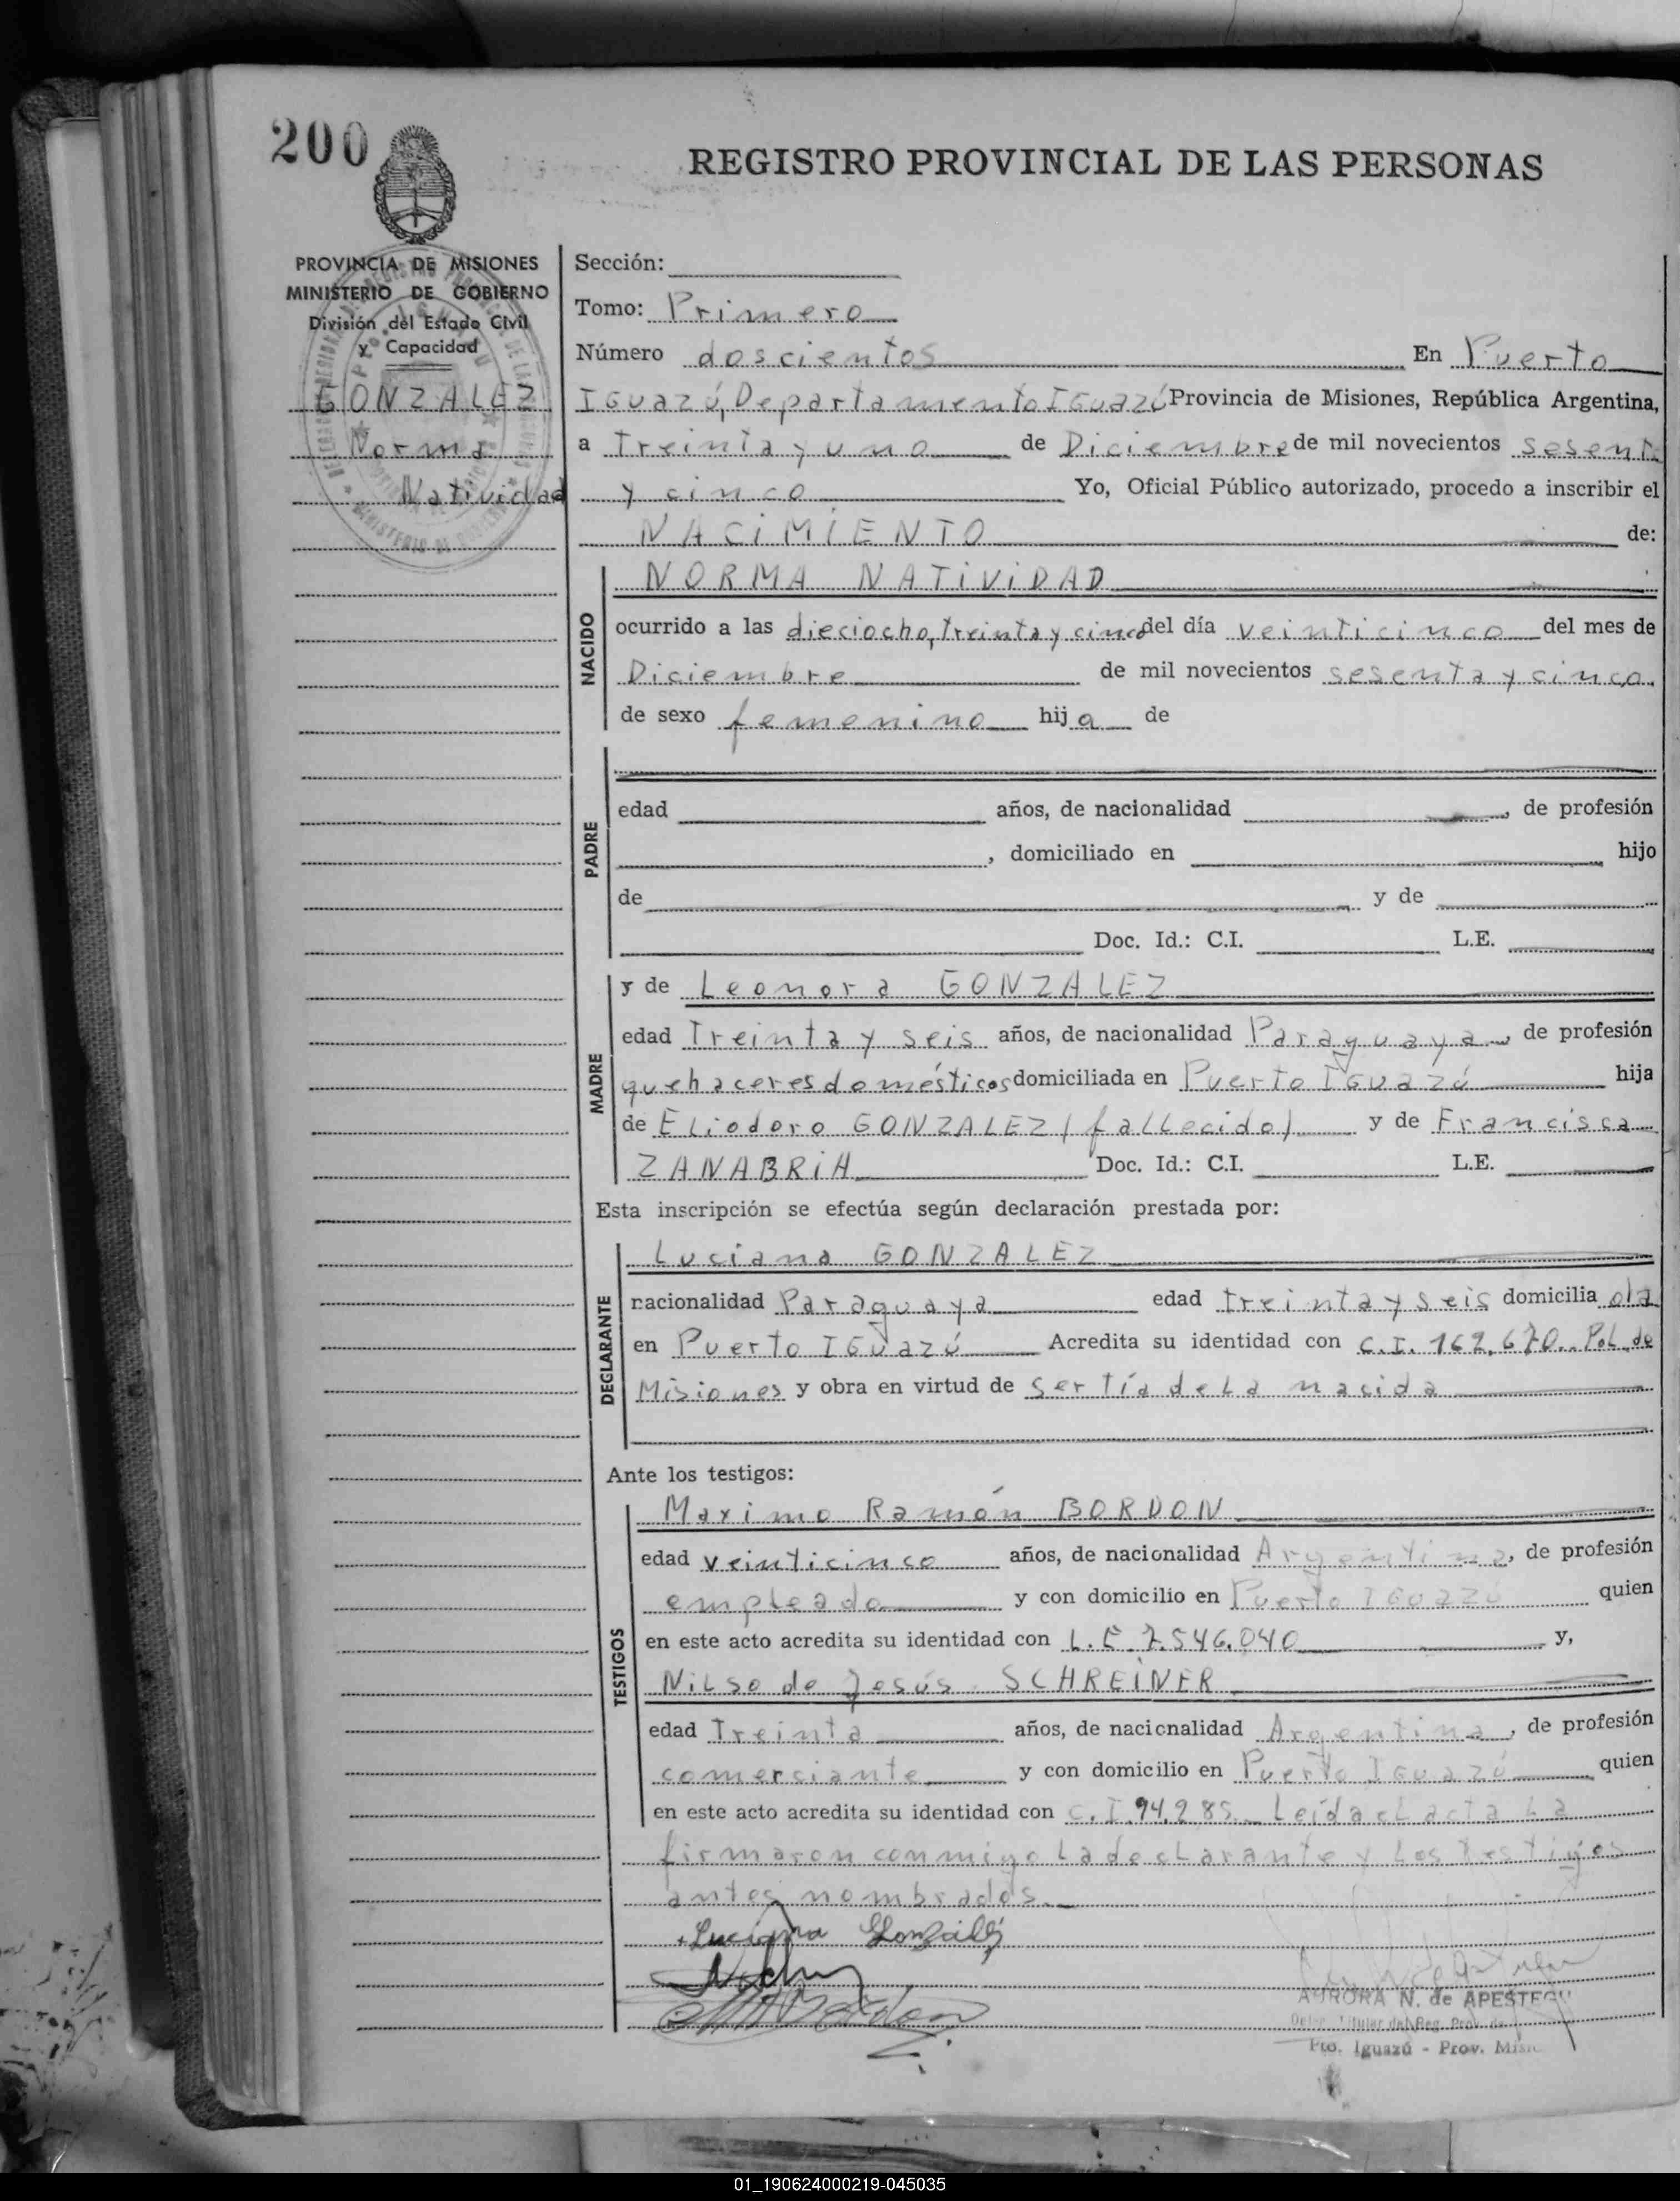 200
REGISTRO PROVINCIAL DE LAS PERSONAS
PROVINCIA DE MISIONES
MINISTERIO DE GOBIERNO
División del Estado Civil
y Capacidad
GONZALEZ
Norma
Natividad
Sección:
Tomo: Primero
Número doscientos En Puerto
IGuazú, Departamento IGuazú Provincia de Misiones, República Argentina,
a Treinta y uno de Diciembre de mil novecientos sesenta
y cinco Yo, Oficial Público autorizado, procedo a inscribir el
NACIMIENTO de:
NACIDO
NORMA NATIVIDAD
ocurrido a las dieciocho, treinta y cinco del día veinticinco del mes de
Diciembre de mil novecientos sesenta y cinco
de sexo femenino hija de
PADRE
edad años, de nacionalidad , de profesión
, domiciliado en hijo
de y de
Doc. Id.: C.I. L.E.
MADRE
y de Leonora GONZALEZ
edad Treinta y seis años, de nacionalidad Paraguaya, de profesión
quehaceres domésticos domiciliada en Puerto IGuazú hija
de Eliodoro GONZALEZ (fallecido) y de Francisca
ZANABRIA Doc. Id.: C.I. L.E.
Esta inscripción se efectúa según declaración prestada por:
DECLARANTE
Luciana GONZALEZ
nacionalidad Paraguaya edad treinta y seis domicilia da
en Puerto IGuazú Acredita su identidad con C.I. 162.670. Pol. de
Misiones y obra en virtud de ser tía de la nacida
Ante los testigos:
TESTIGOS
Maximo Ramón BORDON
edad veinticinco años, de nacionalidad Argentina, de profesión
empleado y con domicilio en Puerto IGuazú quien
en este acto acredita su identidad con L.E. 7.546.040 y,
Nilso de Jesús SCHREINER
edad Treinta años, de nacionalidad Argentina, de profesión
comerciante y con domicilio en Puerto IGuazú quien
en este acto acredita su identidad con C.I. 94.285. Leída el acta la
firmaron conmigo la declarante y los testigos
antes nombrados.
Luciana González
AURORA N. de APESTEGU
Titular del Reg. Prov. de
Pto. Iguazú - Prov. Misio
01_190624000219-045035